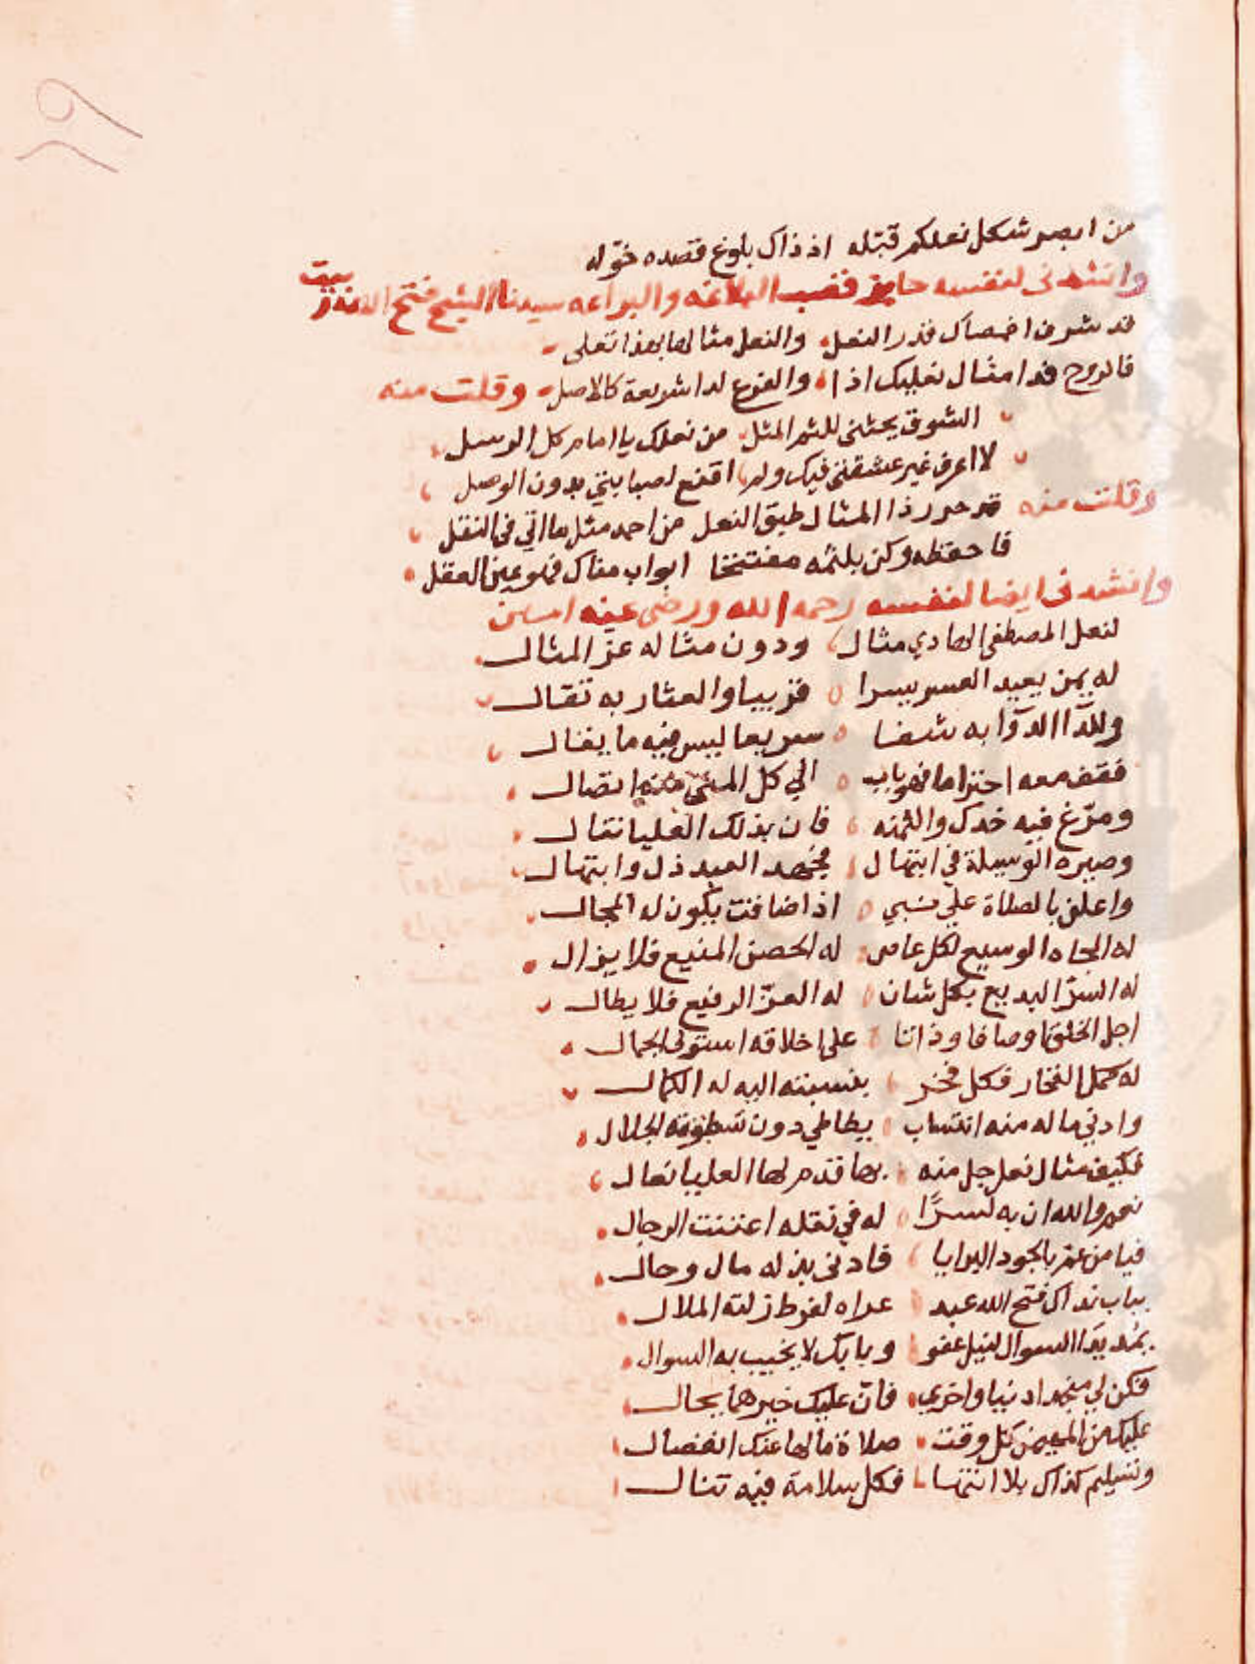 من ابصر شكل نعلكم قبّله اذ ذاك بلوغ قصده خوّله
وانشدنى لنفسه حايز قصب البلاغه والبراعه سيدنا الشيخ فتح الله
قد شرف اخمصاك قدر النعل والنعل مثالها بهذا تعلى
فالروح فدا مثال نعليك اذا والفرع لدا شريعة كالاصل وقلت منه
الشوق يحثني للثم المثل من نعلك يا امام كل الرسل
لا اعرف غير عشقتي فيك ولم اقنع لصبابتي بدون الوصل
وقلت منه قد حرر ذا المثال طبق النعل من احمد مثل ما اتي في النقل
فاحفظه وكن بلثمه مفتتحا ابواب مناك فهو عين العقل
وانشدنى ايضا لنفسه رحمه الله ورضى عنه امين
لنعل المصطفى الهادي مثال ودون مثاله عز المثال
له يمن يعيد العسر يسرا قريبا والعثار به تقال
وللدآ الدوآ به شفا سريعا ليس فيه ما يقال
فقف معه احتراما فهو باب الي كل المنى منه اتصال
ومرّغ فيه خدك والثمنه فان بذلك العليا تنال
وصيره الوسيلة في ابتهال فجهد العبد ذل وابتهال
واعلن بالصلاة علي نبي اذا ضاقت يكون له المجال
له الجاه الوسيع لكل عاص له الحصن المنيع فلا يزال
له السرّ البديع بكل شان له العزّ الرفيع فلا يطال
اجل الخلق اوصافا وذاتا على اخلاقه استولى الجمال
له كمل الفخار فكل فخر بنسبته اليه له الكمال
وادني ما له منه انتساب يطاطي دون سطوته الجلال
فكيف مثال نعل جل منه بها قدم لها العليا نعال
نعم والله ان به لسرًّا له في نقله اعتنت الرجال
فيا من عم بالجود البرايا فادنى بذله مال وحال
بباب نداك فتح الله عبد عراه لفرط زلته الملال
يمد يدا السوال لنيل عفو وبابك لا يخيب به السوال
فكن لي منجدا دنيا واخري فان عليك خيرهما يحال
عليك من المهيمن كل وقت صلاة ما لها عنك انفصال
وتسليم كذاك بلا انتها فكل سلامة فيه تنال